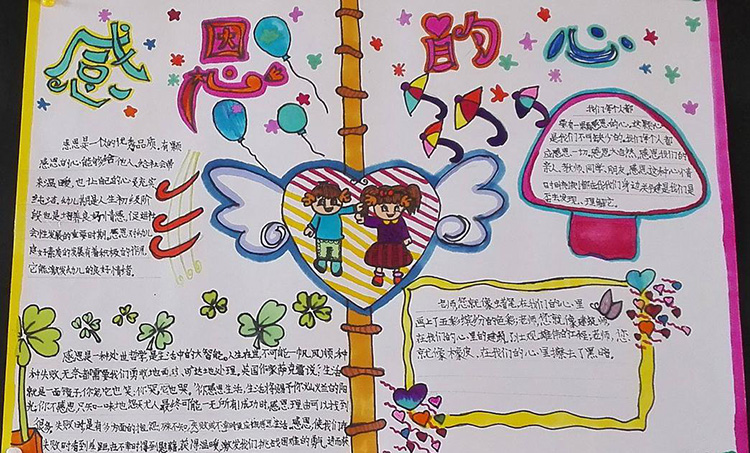 感恩的心
感恩是一份优秀品质,有颗
感恩的心能够给他人、给社会带
来温暖,也让自己的心灵充实
会性发展的重要时期。感恩对幼儿
良好素质的发展有着积极的作用,
它能激发幼儿的良好情绪。
感恩是一种处世哲学,是生活中的大智慧。人生在世,不可能一帆风顺,种
种失败、无奈都需要我们勇敢地面对、旷达地处理。英国作家萨克雷说:生活
就是一面镜子,你笑,它也笑;你哭,它也哭。你感恩生活,生活将赐予你灿烂的阳
光;你不感恩,只知一味地怨天尤人,最终可能一无所有!成功时,感恩的理由可以找到
很多;失败时
失败时看到差距,在不幸时得到慰藉、获得温暖,激发我们挑战困难的勇气,进而获
我们每个人都
带有一颗感恩的心,这颗心
是我们不可缺少的。我们每个人都
应感恩一切,感恩大自然,感恩我们的
亲人、教师、同学、朋友。感恩这种心情
去发现、理解它。
老师,您就像蜡笔,在我们的心里
画上了五彩缤纷的色彩;老师,您就像建筑师,
在我们心里的建筑了壮观、雄伟的工程;老师,您
就像橡皮,在我们的心里擦去了黑暗。